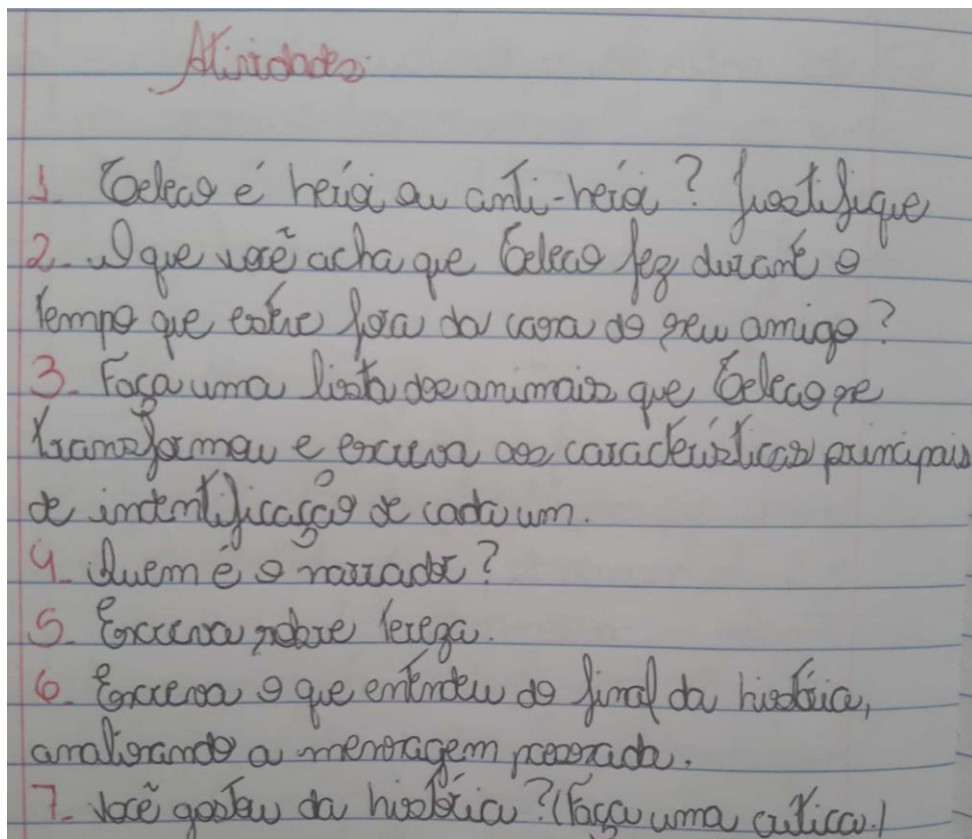 Atividades
1. Teleco é herói ou anti-herói? Justifique
2. O que você acha que Teleco fez durante o
tempo que esteve fora da casa do seu amigo?
3. Faça uma lista dos animais que Teleco se
transformou e escreva as características principais
de indentificação de cada um.
4. Quem é o narrador?
5. Escreva sobre Tereza.
6. Escreva o que entendeu do final da história,
analisando a mensagem passada.
7. Você gostou da história? (Faça uma crítica.)